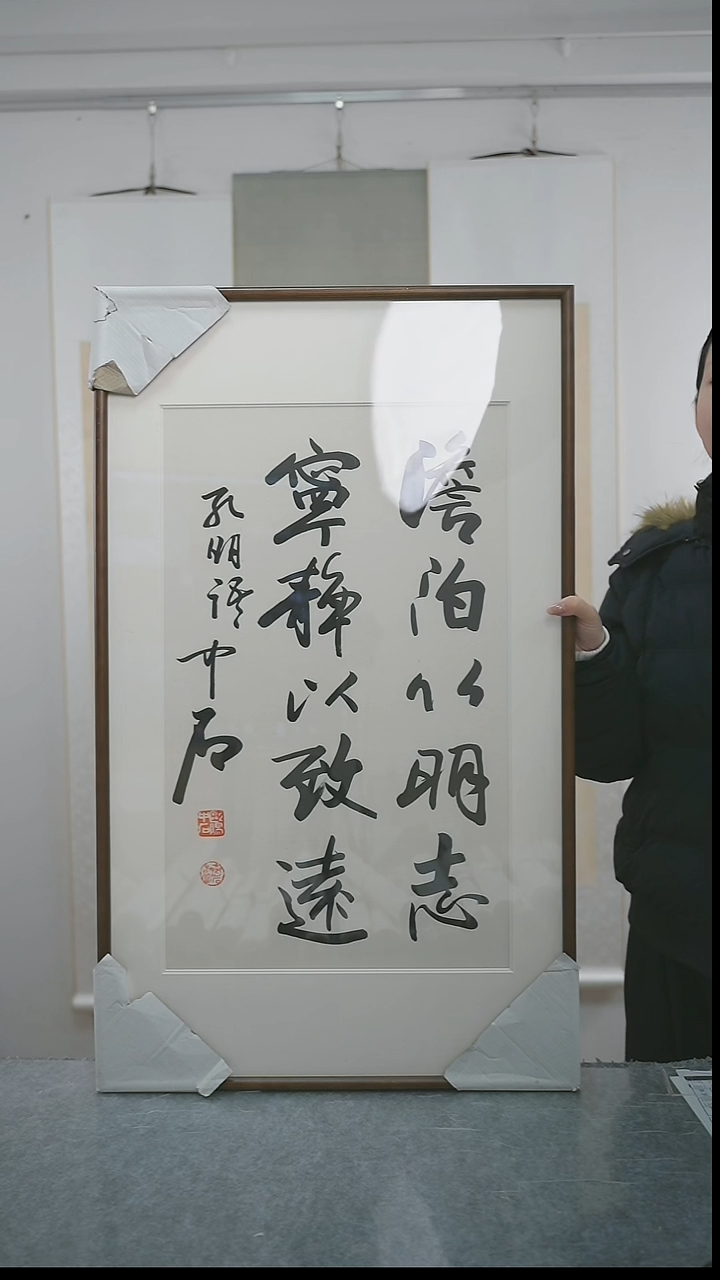 澹泊以明志
寧靜以致遠
孔明語 中石